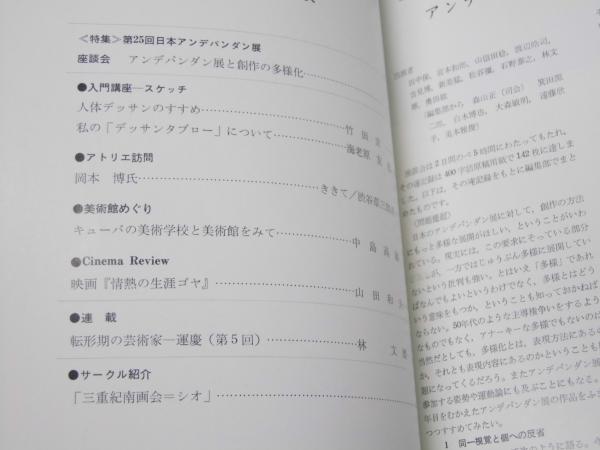 <特集>第25回日本アンデパンダン展
座談会 アンデパンダン展と創作の多様化……
●入門講座―スケッチ
人体デッサンのすすめ……竹田
私の「デッサンタブロー」について……海老原
●アトリエ訪問
岡本 博氏……ききて/渋谷草三郎
●美術館めぐり
キューバの美術学校と美術館をみて……中島
●Cinema Review
映画『情熱の生涯ゴヤ』……山田和夫
●連 載
転形期の芸術家―運慶(第5回)……林 文雄
●サークル紹介
「三重紀南画会=シオ」……
アンデ
出席者
田中保、宮本和郎、山領田稔、渡辺皓司、
吉見博、新美猛、松谷
、奥田
(編集部から 森山正(司会) 箕田源
二郎、白木博也、大森敏明、遠藤欣
子、美本雅俊)
座談会は2日間のべ5時間にわたってもたれ、
その速記録は400字詰原稿用紙で142枚に達しま
した。以下は、その速記録をもとに編集部でまと
めたものです。
(問題提起)
日本のアンデパンダン展に対して、創作の方法
にもっと多様な展開がほしい、ということがいわ
れている。現実には、この要求にそっている部分
が、一方ではじゅうぶん多様に展開してい
ないという批判も強い。とはいえ「多様」であれ
ばなんでもよいというわけでなく、多様とはどう
いう意味をもつか、ということも知っておかねば
ならない。50年代のような主導権争いをするよう
なものでもなく、アナーキーな多様でもないのは
当然だとしても、多様化とは、表現方法にあるの
か、それとも表現内容にあるのかということも
題になってくるだろう。またアンデパンダン展
参加する姿勢や運動論にも及ぶことにもなる。
年目をむかえたアンデパンダン展の作品をふま
つつすすめてみたい。
1 同一視覚と個への反省